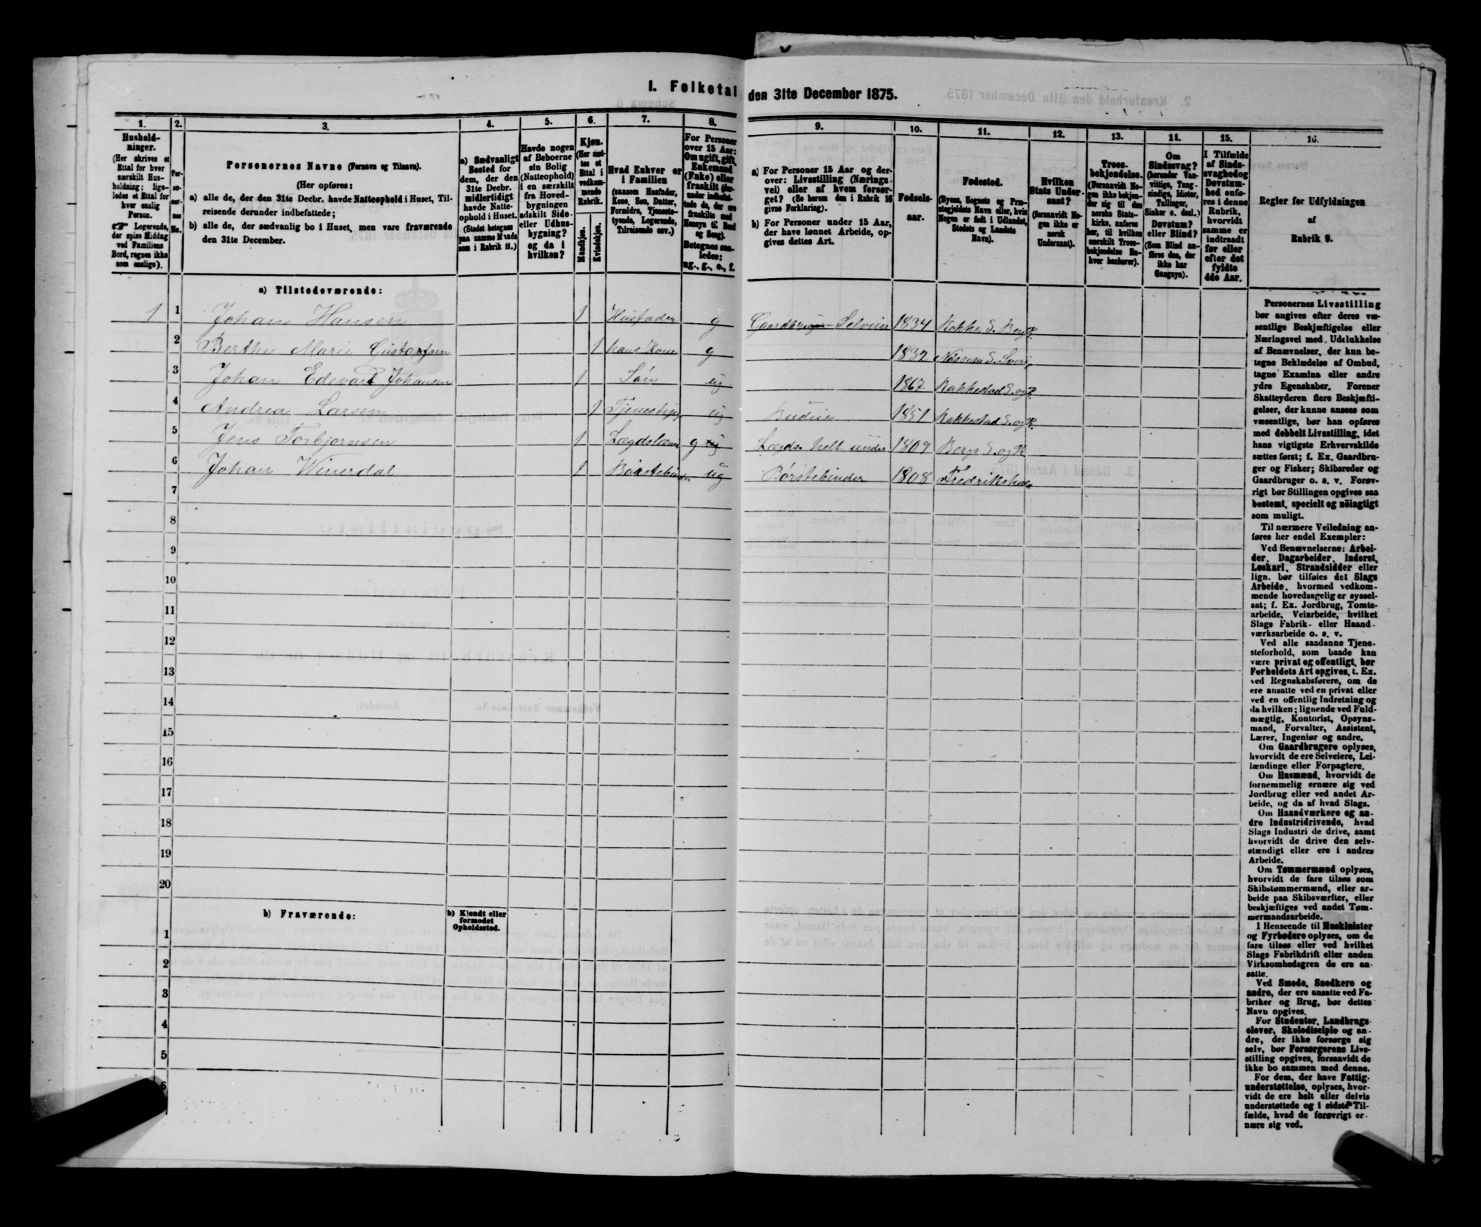 I. Folketal den 31te December 1875.
1. 2. 3. 4. 5. 6. 7. 8. 9. 10. 11. 12. 13. 14. 15. 16.
Husholdninger.
(Her skrives et Ettal for hver særskilt Husholdning; ligeledes et Ettal for hver enslig Person.
☞ Logerende, der spise Middag ved Familiens Bord, regnes ikke som enslige).
Personernes No.
Personernes Navne (Fornavn og Tilnavn).
(Her opføres:
a) alle de, der den 31te Decbr. havde Natteophold i Huset, Tilreisende derunder indbefattede;
b) alle de, der sædvanlig bo i Huset, men vare fraværende den 31te December.
a) Sædvanligt Bosted for dem, der den 31te Decbr. midlertidigt havde Natteophold i Huset.
(Stedet betegnes paa samme Maade som i Rubrik 11.)
Havde nogen af Beboerne sin Bolig (Natteophold) i en særskilt fra Hovedbygningen adskilt Side- eller Udhusbygning? og da i hvilken?
Kjøn.
(Her sættes et Ettal i vedkommende Rubrik.
Mandkjøn. Kvindekjøn.
Hvad Enhver er i Familien
(saasom Husfader, Kone, Søn, Datter, Forældre, Tjenestetyende, Logerende, Tilreisende osv.)
For Personer over 15 Aar: Om ugift, gift, Enkemand (Enke) eller fraskilt
Betegnes saaledes: ug., g., e., f.
a) For Personer 15 Aar og derover: Livsstilling (Næringsvei) eller af hvem forsørget? (Se herom den i Rubrik 16 givne Forklaring).
b) For Personer under 15 Aar, der have lønnet Arbeide, opgives dettes Art.
Fødselsaar.
Fødested.
(Byens, Sognets og Præstegjeldets Navn eller, hvis Nogen er født i Udlandet, Stedets og Landets Navn).
Hvilken Stats Undersaat?
(forsaavidt Nogen ikke er norsk Undersaat).
Troesbekjendelse.
(Forsaavidt Nogen ikke bekjender sig til den norske Statskirke, anføres her, til hvilken særskilt Troesbekjendelse Enhver henhører).
Om Sindssvag? (herunder Vanvittige, Tungsindige, Idioter, Tullinger, Sinker o. desl.) Døvstum? eller Blind?
(Som Blind anføres den, der ikke har Gangsyn).
I Tilfælde af Sindssvaghed og Døvstumhed anføres i denne Rubrik, hvorvidt samme er indtraadt før eller efter det fyldte 4de Aar.
Regler før Udfyldningen af Rubrik 9.
a) Tilstedeværende:
1 1 Johan Hansen 1 Husfader g Gaardbruger Selveier 1834
2 Berthe Marie Gustavsen 1 hans Kone g 1832
3 Johan Edevart Johansen 1 Søn ug 1867 Rakkestad S. og P.
4 Andrea Larsen 1 ug Budeie 1851 Rakkestad S. og P.
5 Jens Torbjørnsen 1 Lægdslem g 1809 Bergs S. og P.
6 Johan Winerdal 1 Børstebinder ug Børstebinder 1808 Fredrikshald
7
8
9
10
11
12
13
14
15
16
17
18
19
20
b) Fraværende:
b) Kjendt eller formodet Opholdssted.
1
2
3
4
5
6
Personernes Livsstilling
bør angives efter deres væ-
sentlige Beskjæftigelse eller
Næringsvei med Udelukkelse
af Benævnelser, der kun be-
tegne Beklædelse af Ombud,
tagne Examina eller andre
ydre Egenskaber. Forener
Skatteyderen flere Beskjæfti-
gelser, der kunne ansees som
væsentlige, bør han opføres
med dobbelt Livsstilling, idet
hans vigtigste Erhvervskilde
sættes først; f. Ex. Gaardbru-
ger og Fisker; Skibsreder og
Gaardbruger o. s. v. Forøv-
rigt bør Stillingen opgives saa
bestemt, specielt og nöiagtigt
som muligt.
Til nærmere Veiledning an-
føres her endel Exempler:
Ved Benævnelserne: Arbei-
der, Dagarbeider, Inderst,
Løskarl, Strandsidder eller
lign. bør tilføies det Slags
Arbeide, hvormed vedkom-
mende hovedsagelig er syssel-
sat; f. Ex. Jordbrug, Tomte-
arbeide, Veiarbeide, hvilket
Slags Fabrik- eller Haand-
værksarbeide o. s. v.
Ved alle saadanne Tjene-
steforhold, som baade kan
være privat og offentligt, bør
Forholdets Art opgives, t. Ex.
ved Regnskabsførere, om de
ere ansatte ved en privat eller
ved en offentlig Indretning og
da hvilken; lignende ved Fuld-
mægtig, Kontorist, Opsyns-
mand, Forvalter, Assistent,
Lærer, Ingeniør og andre.
Om Gaardbrugere oplyses,
hvorvidt de ere Selveiere, Lei-
lændinge eller Forpagtere.
Om Husmænd, hvorvidt de
fornemmelig ernære sig ved
Jordbrug eller ved andet Ar-
beide, og da af hvad Slags.
Om Haandværkere og an-
dre Industridrivende, hvad
Slags Industri de drive, samt
hvorvidt de drive den selv-
stændigt eller ere i andres
Arbeide.
Om Tømmermænd oplyses,
hvorvidt de fare tilsøs som
Skibstømmermænd, eller ar-
beide paa Skibsværfter, eller
beskjæftiges ved andet Tøm-
mermandsarbeide.
I Henseende til Maskinister
og Fyrbødere oplyses, om de
fare tilsøs eller ved hvilket
Slags Fabrikdrift eller anden
Virksomhedsgren de ere an-
satte.
Ved Smede, Snedkere og
andre, der ere ansatte ved Fa-
briker og Brug, bør dettes
Navn opgives.
For Studenter, Landbrugs-
elever, Skoledisciple og an-
dre, der ikke forsørge sig
selv, bør Forsørgerens Livs-
stilling opgives, forsaavidt de
ikke bo sammen med denne.
For dem, der have Fattig-
understøttelse, oplyses, hvor-
vidt de ere helt eller delvis
understøttede og i sidste Til-
fælde, hvad de forøvrigt er-
nære sig ved.